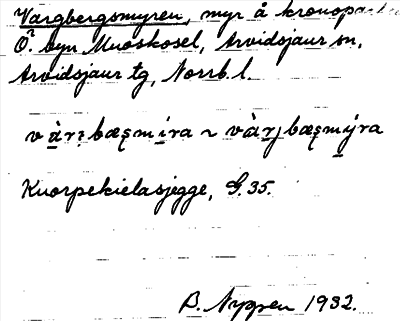 Vargbergsmyren, myr å kronopa
O̊ byn Muoskosel, Arvidsjaur sn,
Arvidsjaur tg, Norrb. l.
vàrɉbæʂmira ~ vàrjbæʂmýra
Kuorpekielasjegge, G. 35.
B. Nygren 1932.